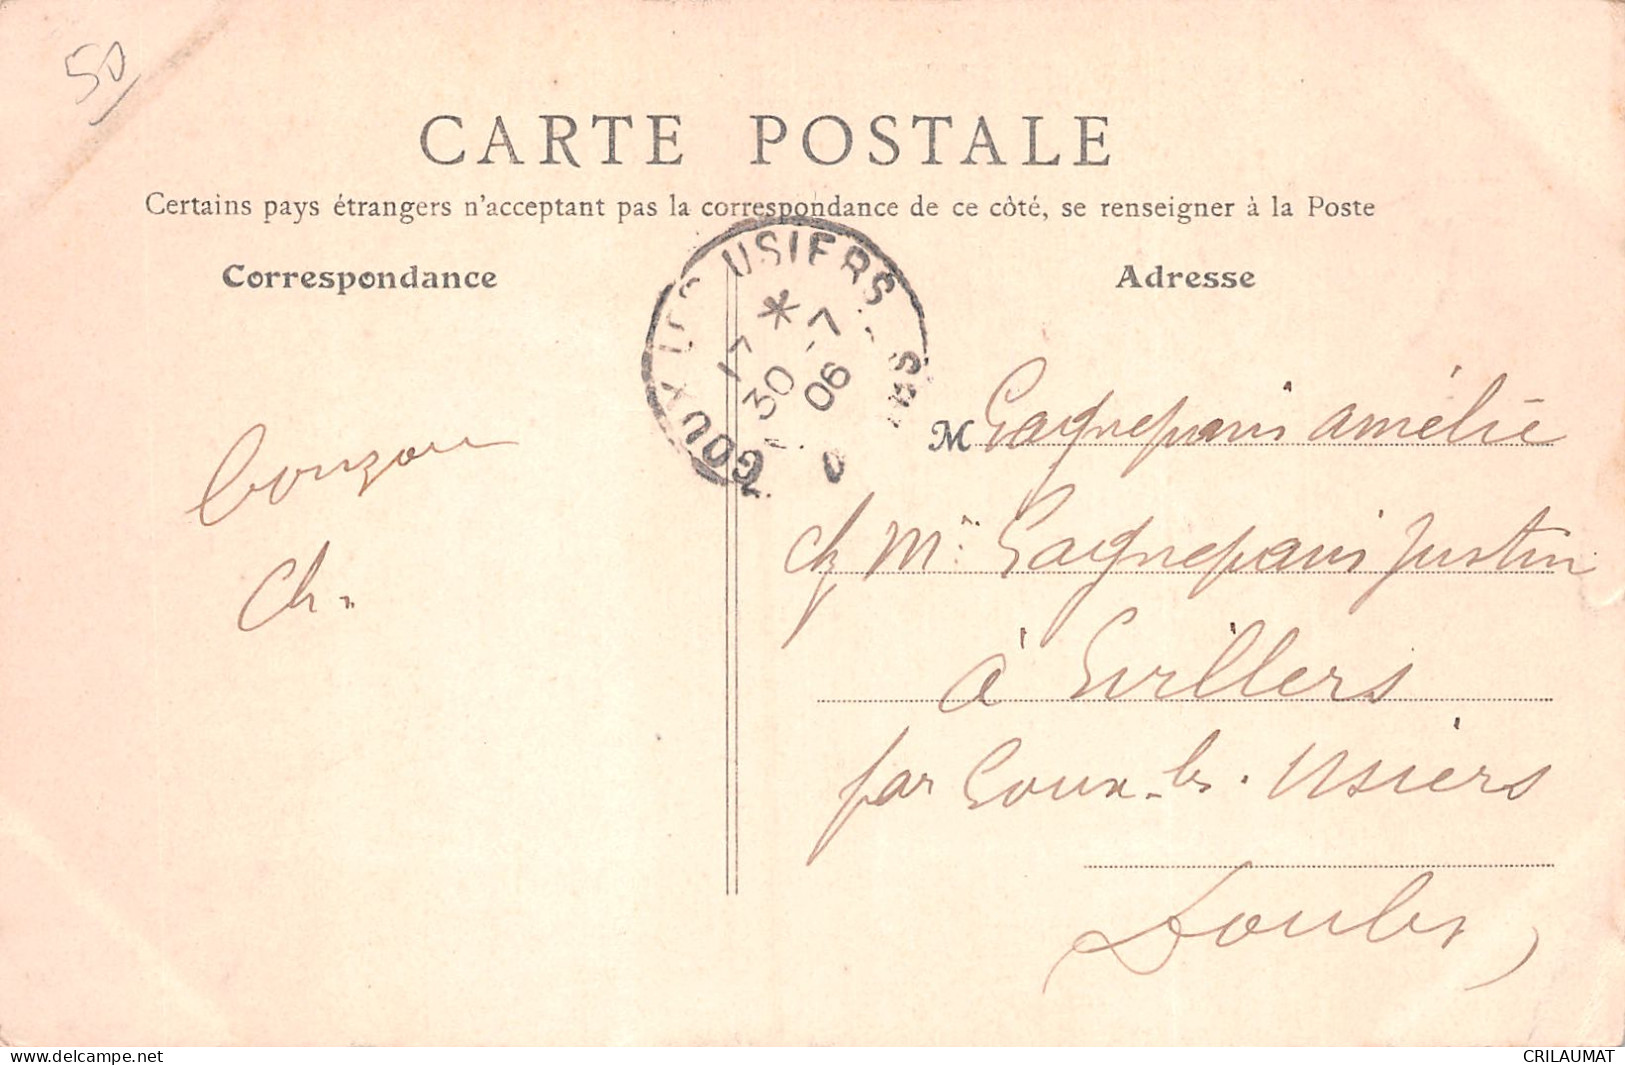 50
CARTE POSTALE
Certains pays étrangers n'acceptant pas la correspondance de ce côté, se renseigner à la Poste
Correspondance
Adresse
GOUX LES USIERS
17 *
30 -7
06
M Gagnepain Amélie
ch Mr Gagnepain Justin
à Evillers
par Goux-les-Usiers
Doubs
Ch.
www.delcampe.net
CRILAUMAT